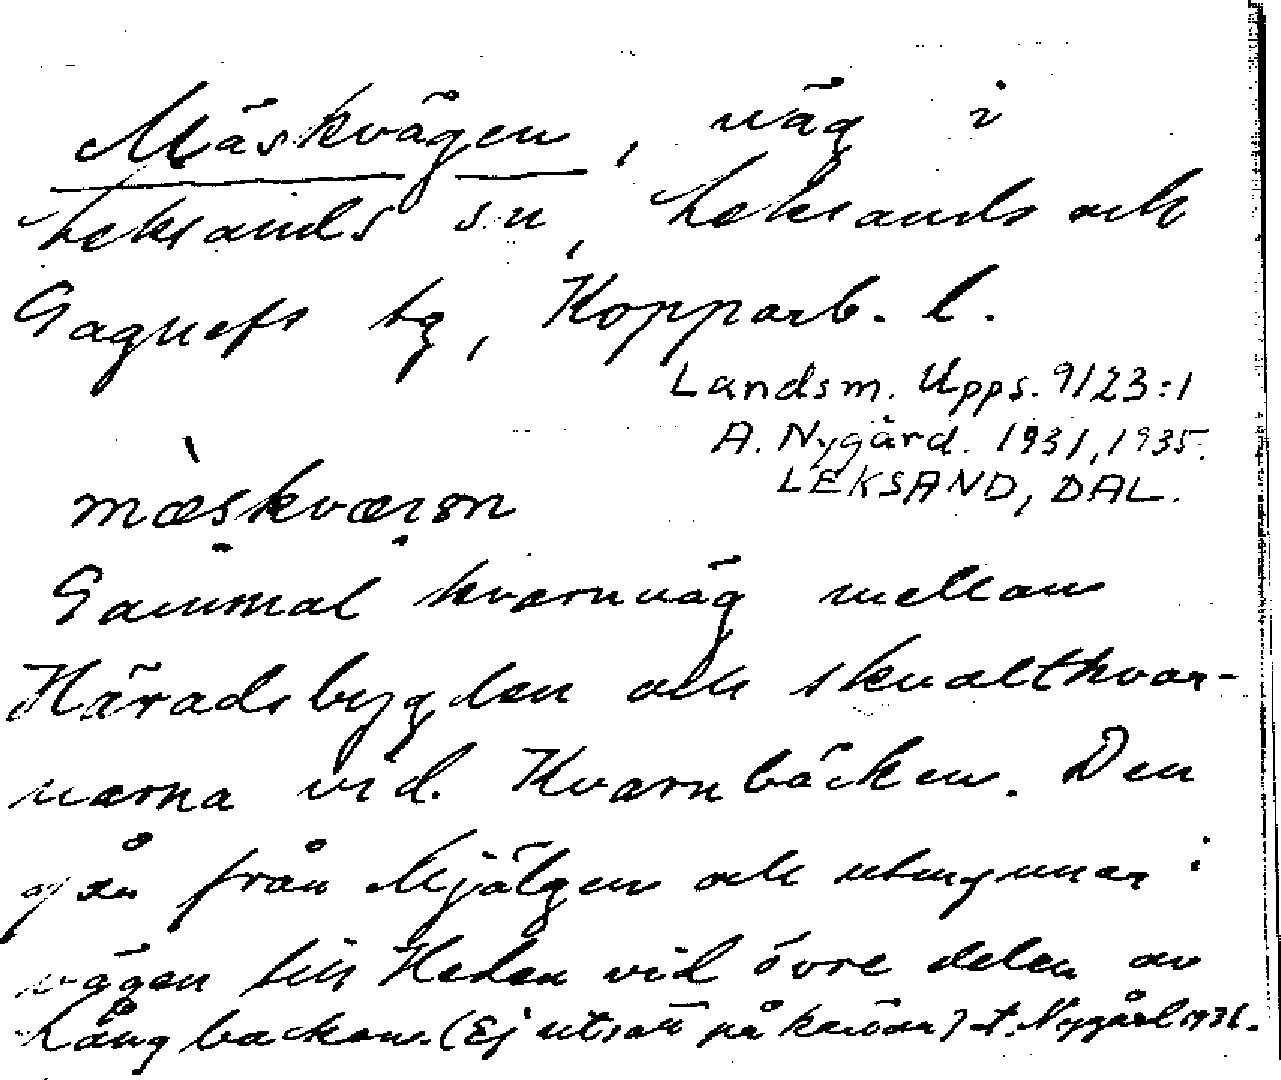 Mäskvägen, väg i
Leksands sn, Leksands och
Gagnefs tg, Kopparb. l.
Landsm. Upps. 9123:1
A. Nygård. 1931, 1935.
LEKSAND, DAL.
Gammal kvarnväg mellan
Häradsbygden och skvaltkvar-
narna vid. Kvarnbäcken. Den
går från Mjälgen och utmynnar i
vägen till Heden vid övre delen av
Långbackan. (Ej utsatt på kartan) A. Nygård 1931.